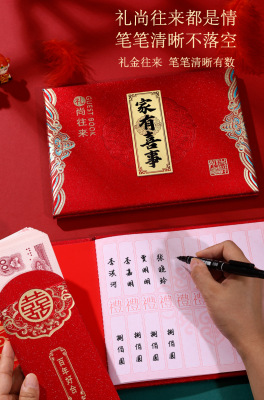 礼尚往来都是情
笔笔清晰不落空
礼金往来 笔笔清晰有数
GUEST BOOK
礼尚往来
家有喜事
张晓玲
明明
李嘉明
李
禮禮禮禮
捌佰圆
捌佰圆
捌佰圆
捌佰圆
囍
百年好合